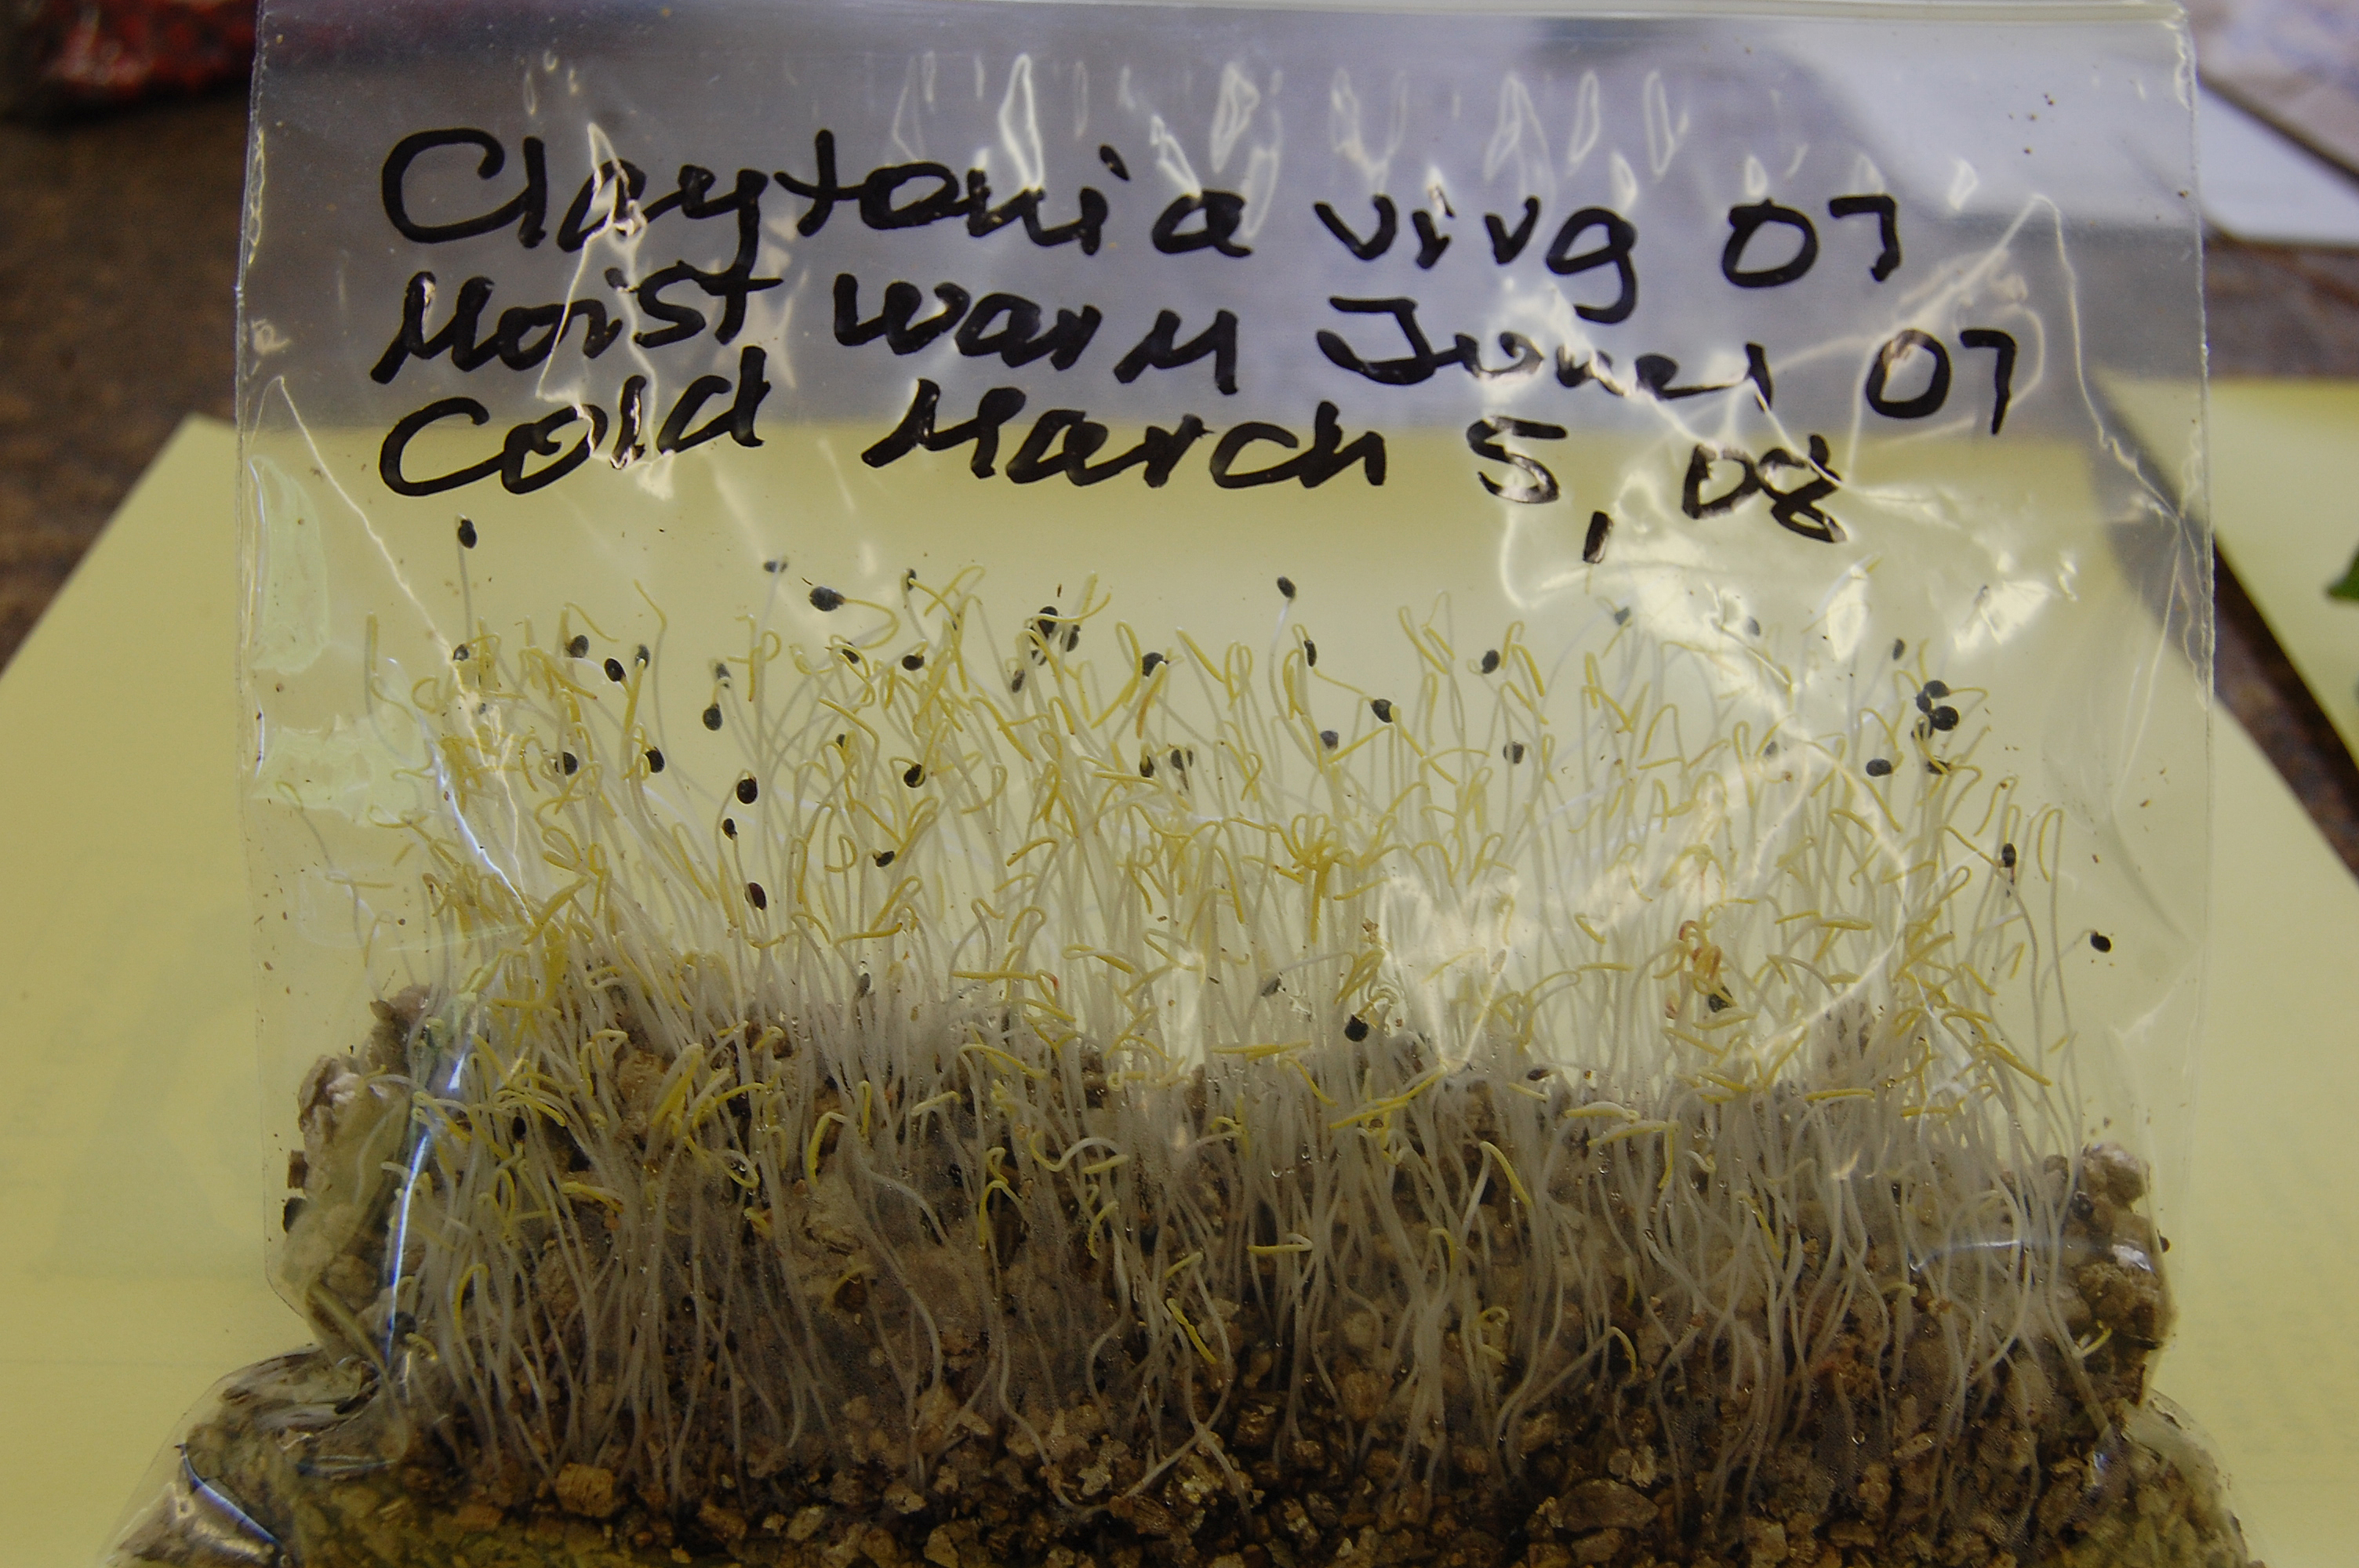 Claytonia virg 07
Moist warm June 1 07
Cold March 5, 08